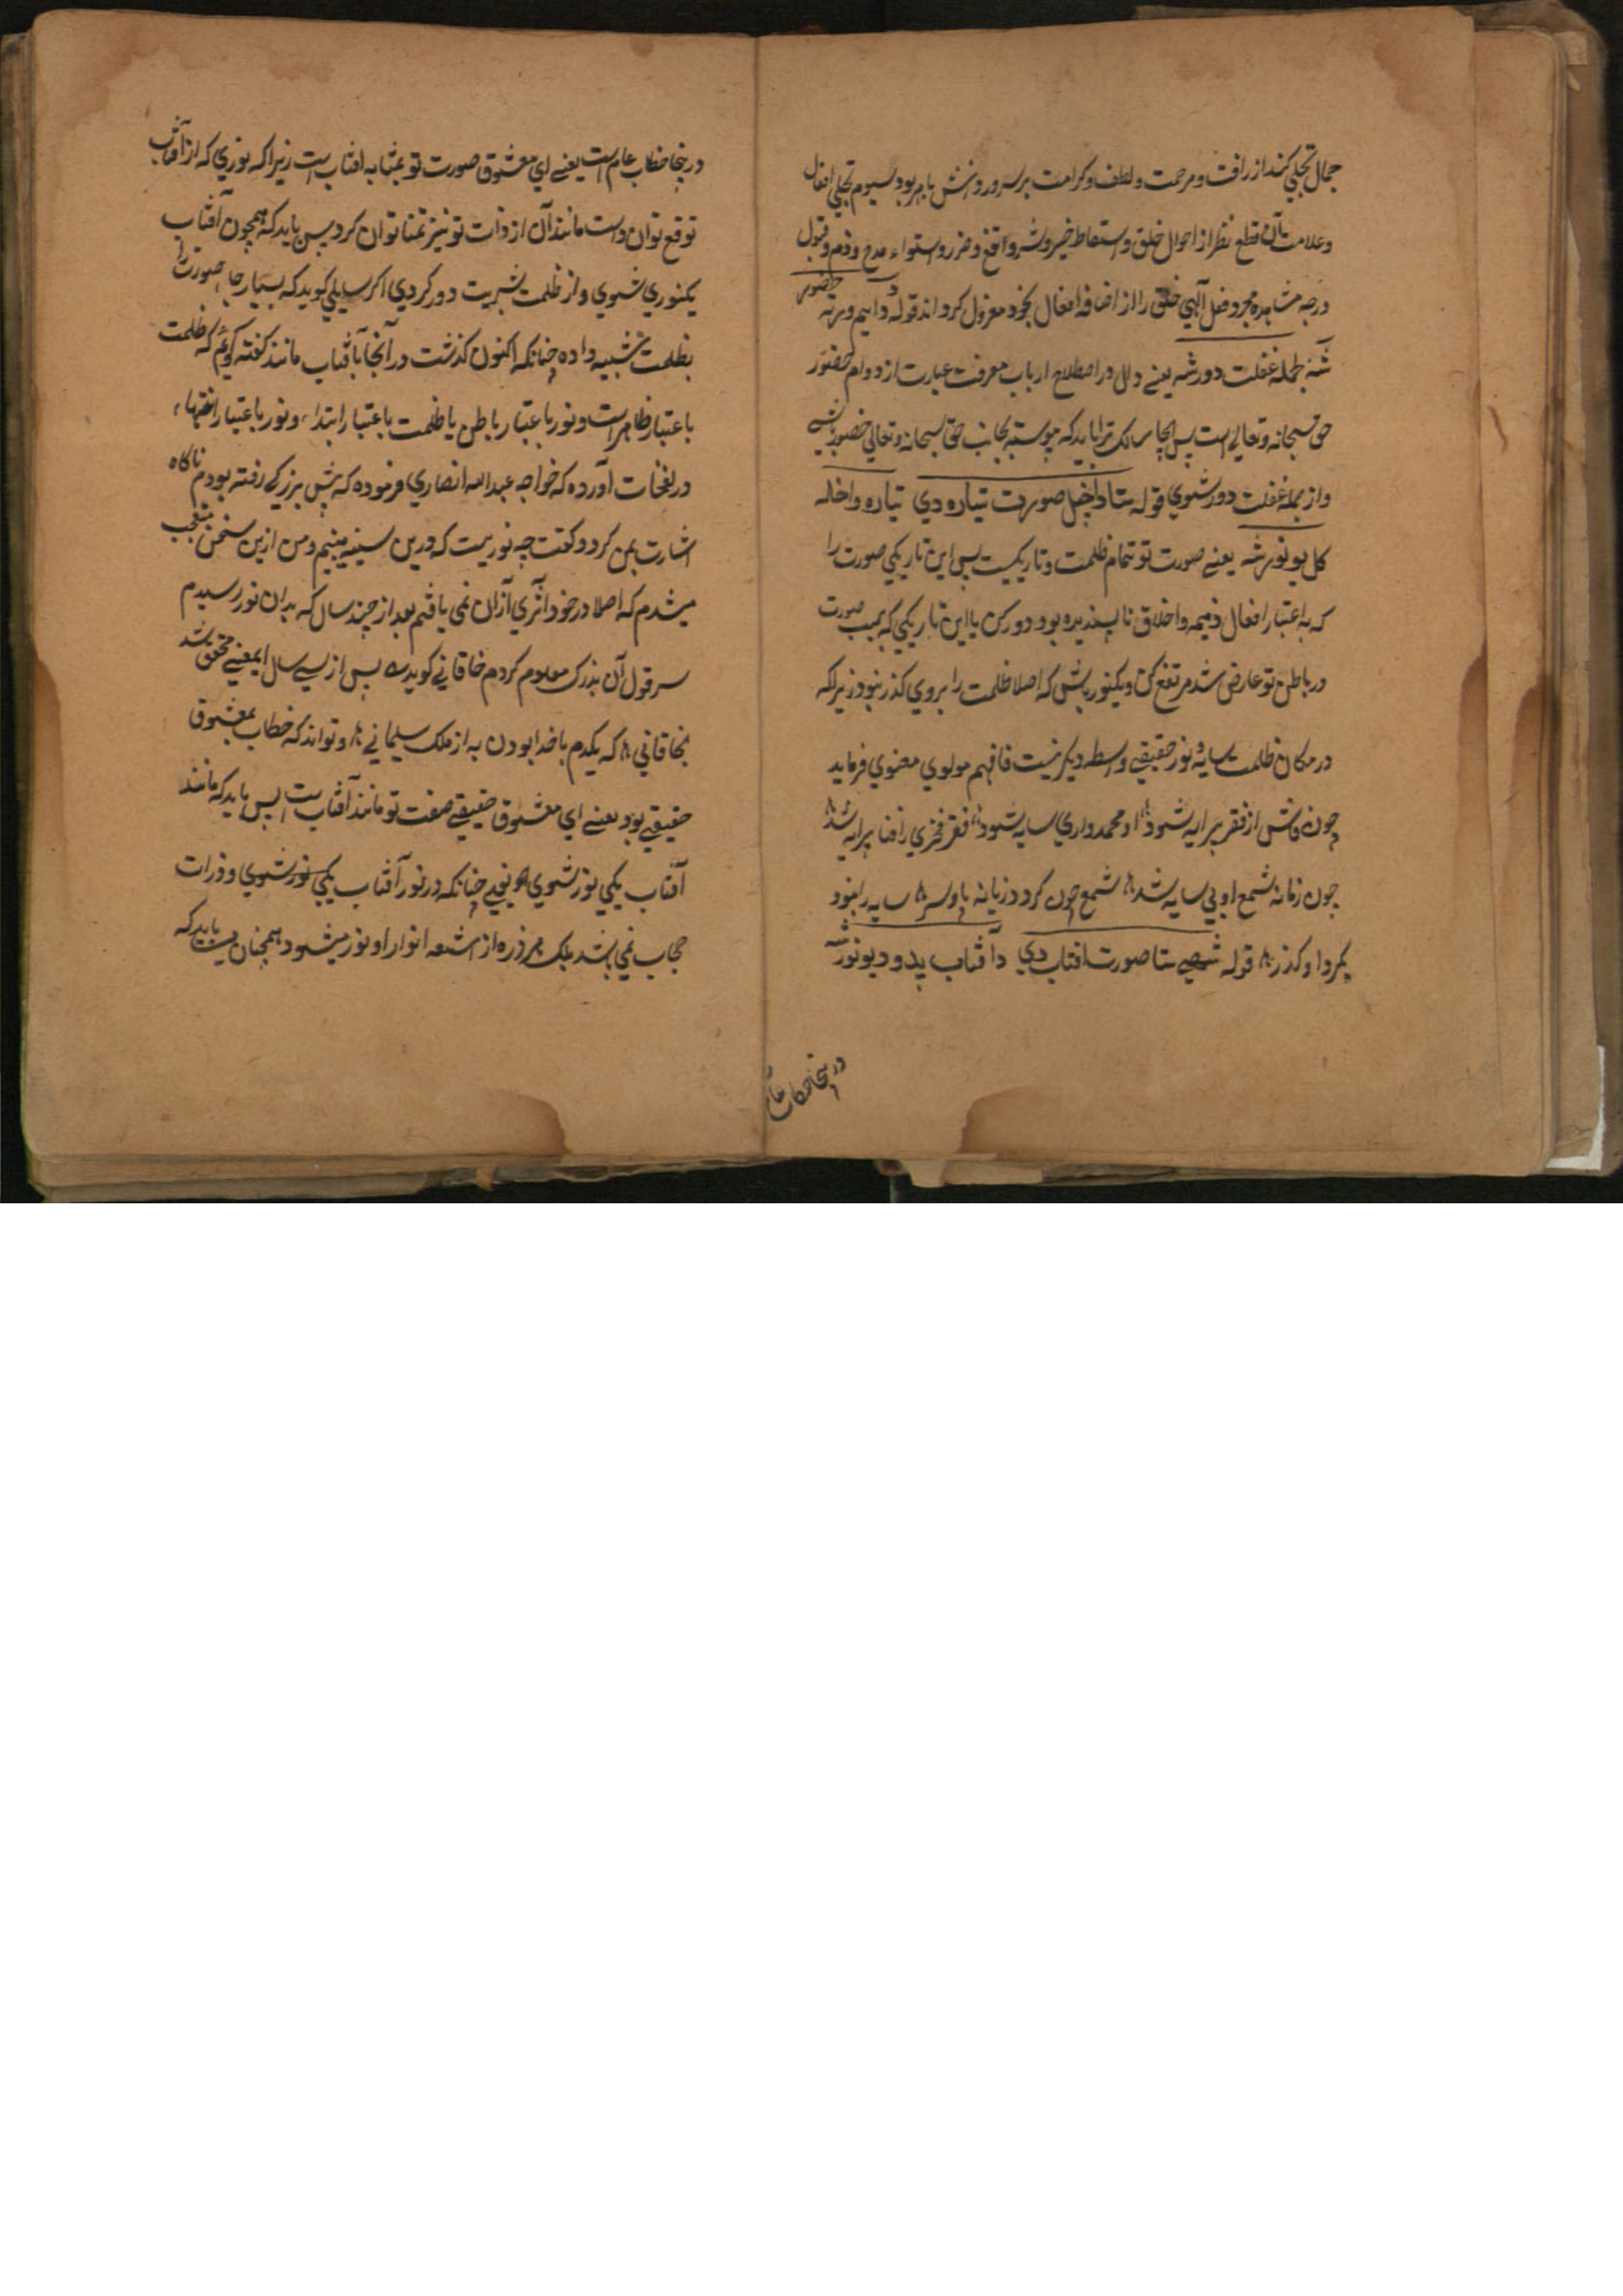 جمال تجلي کند از رافت و مرحمت و لطف و کرامت برسه ورونش بامر بود سیوم تجلي افعال
وعلامت آن قطع نظر از احوال خلق و اسقاط خیر وشر و نفع وضرر و استواء مدح وذم وقبول
درجه مشاهده مجرد فعل آلهي خلق را از اضافه افعال بخود معزول کرداند قوله دایم ورته حضور
شه جمله غفلت دور شه یعنے دلل در اصطلاح ارباب معرفت عبارت از دوام حضور
حق سبحانه وتعالے است پس ایجا سالک ترا باید که پیوسته بجانب حق سبحانه وتعالي حضور شے
واز جمله غفلت دور شوي قوله ستا داخل صورت تیاره دي تیاره واخله
کل یو نور شه یعنے صورت تو تمام ظلمت وتاریکیست پس این تاریکي صورت را
که به اعتبار افعال ذمیمه واخلاق ناپسندیده بود دور کن یا این تاریکي که بسبب صورت
در باطن تو عارض شد مرتفع کن ویکنور باش که اصلا ظلمت را بروي کذر نبود زیراکه
در مکان ظلمت سایه ونور حقیقے واسطه دیکر نیست فافهم مولوي معنوي فرماید
چون فناش از فقر پیرایه شود او محمد واري سایه شود فقر فخري را فنا پیرایه شد
چون زمانه شمع او بي سایه شد شمع چون کرد د زبانه پا وسر سایه را نبود
بکرد او کذر قوله شمے ستا صورت افتاب دي دآفتاب پدود یو نور شه
درینجا خطاب عام
درینجا خطاب عام است یعنے اي معشوق صورت تو بمثابه افتاب است زیراکه نوري که از آفتاب
توقع توان داست مانند آن از ذات تو نیز تمنا توان کرد پس باید که همچون آفتاب
یکنوري شوي و از ظلمت بشریت دور کردي اکر سایلي کوید که بسیار جا صورت را
بظلمت تشبیه داده چنانکه اکنون کذشت در آنجا بآفتاب مانند کفته کویم که ظلمت
باعتبار ظاهر است ونور باعتبار باطن یا ظلمت باعتبار ابتداء ونور باعتبار انتهاء
در نفحات آورده که خواجه عبدالله انصاري فرموده که پیش بزرکے رفته بودم ناکاه
اشارت بمن کرد وکفت چه نوریست که درین سینه میبینم ومن ازین سخن متعجب
میشدم که اصلا در خود اثري آزان نمي یافتم بعد از چند سال که بدان نور رسیدم
سر قول آن بذرک معلوم کردم خاقانے کوید پس از سے سال ایمعنے محقق شد
بخاقاني که یکدم با خدا بودن به از ملک سلیمانے وتواند که خطاب بمعشوق
حقیقے بود یعنے اي معشوق حقیقے صفت تو مانند آفتاب است پس باید که مانند
آفتاب یکي نور شوي یعنے چنانکه در نور آفتاب یکي نور شوي وذرات
حجاب نمي باشد بلکه هر ذره از اشعه انوار او نور میشود همچنان میباید که